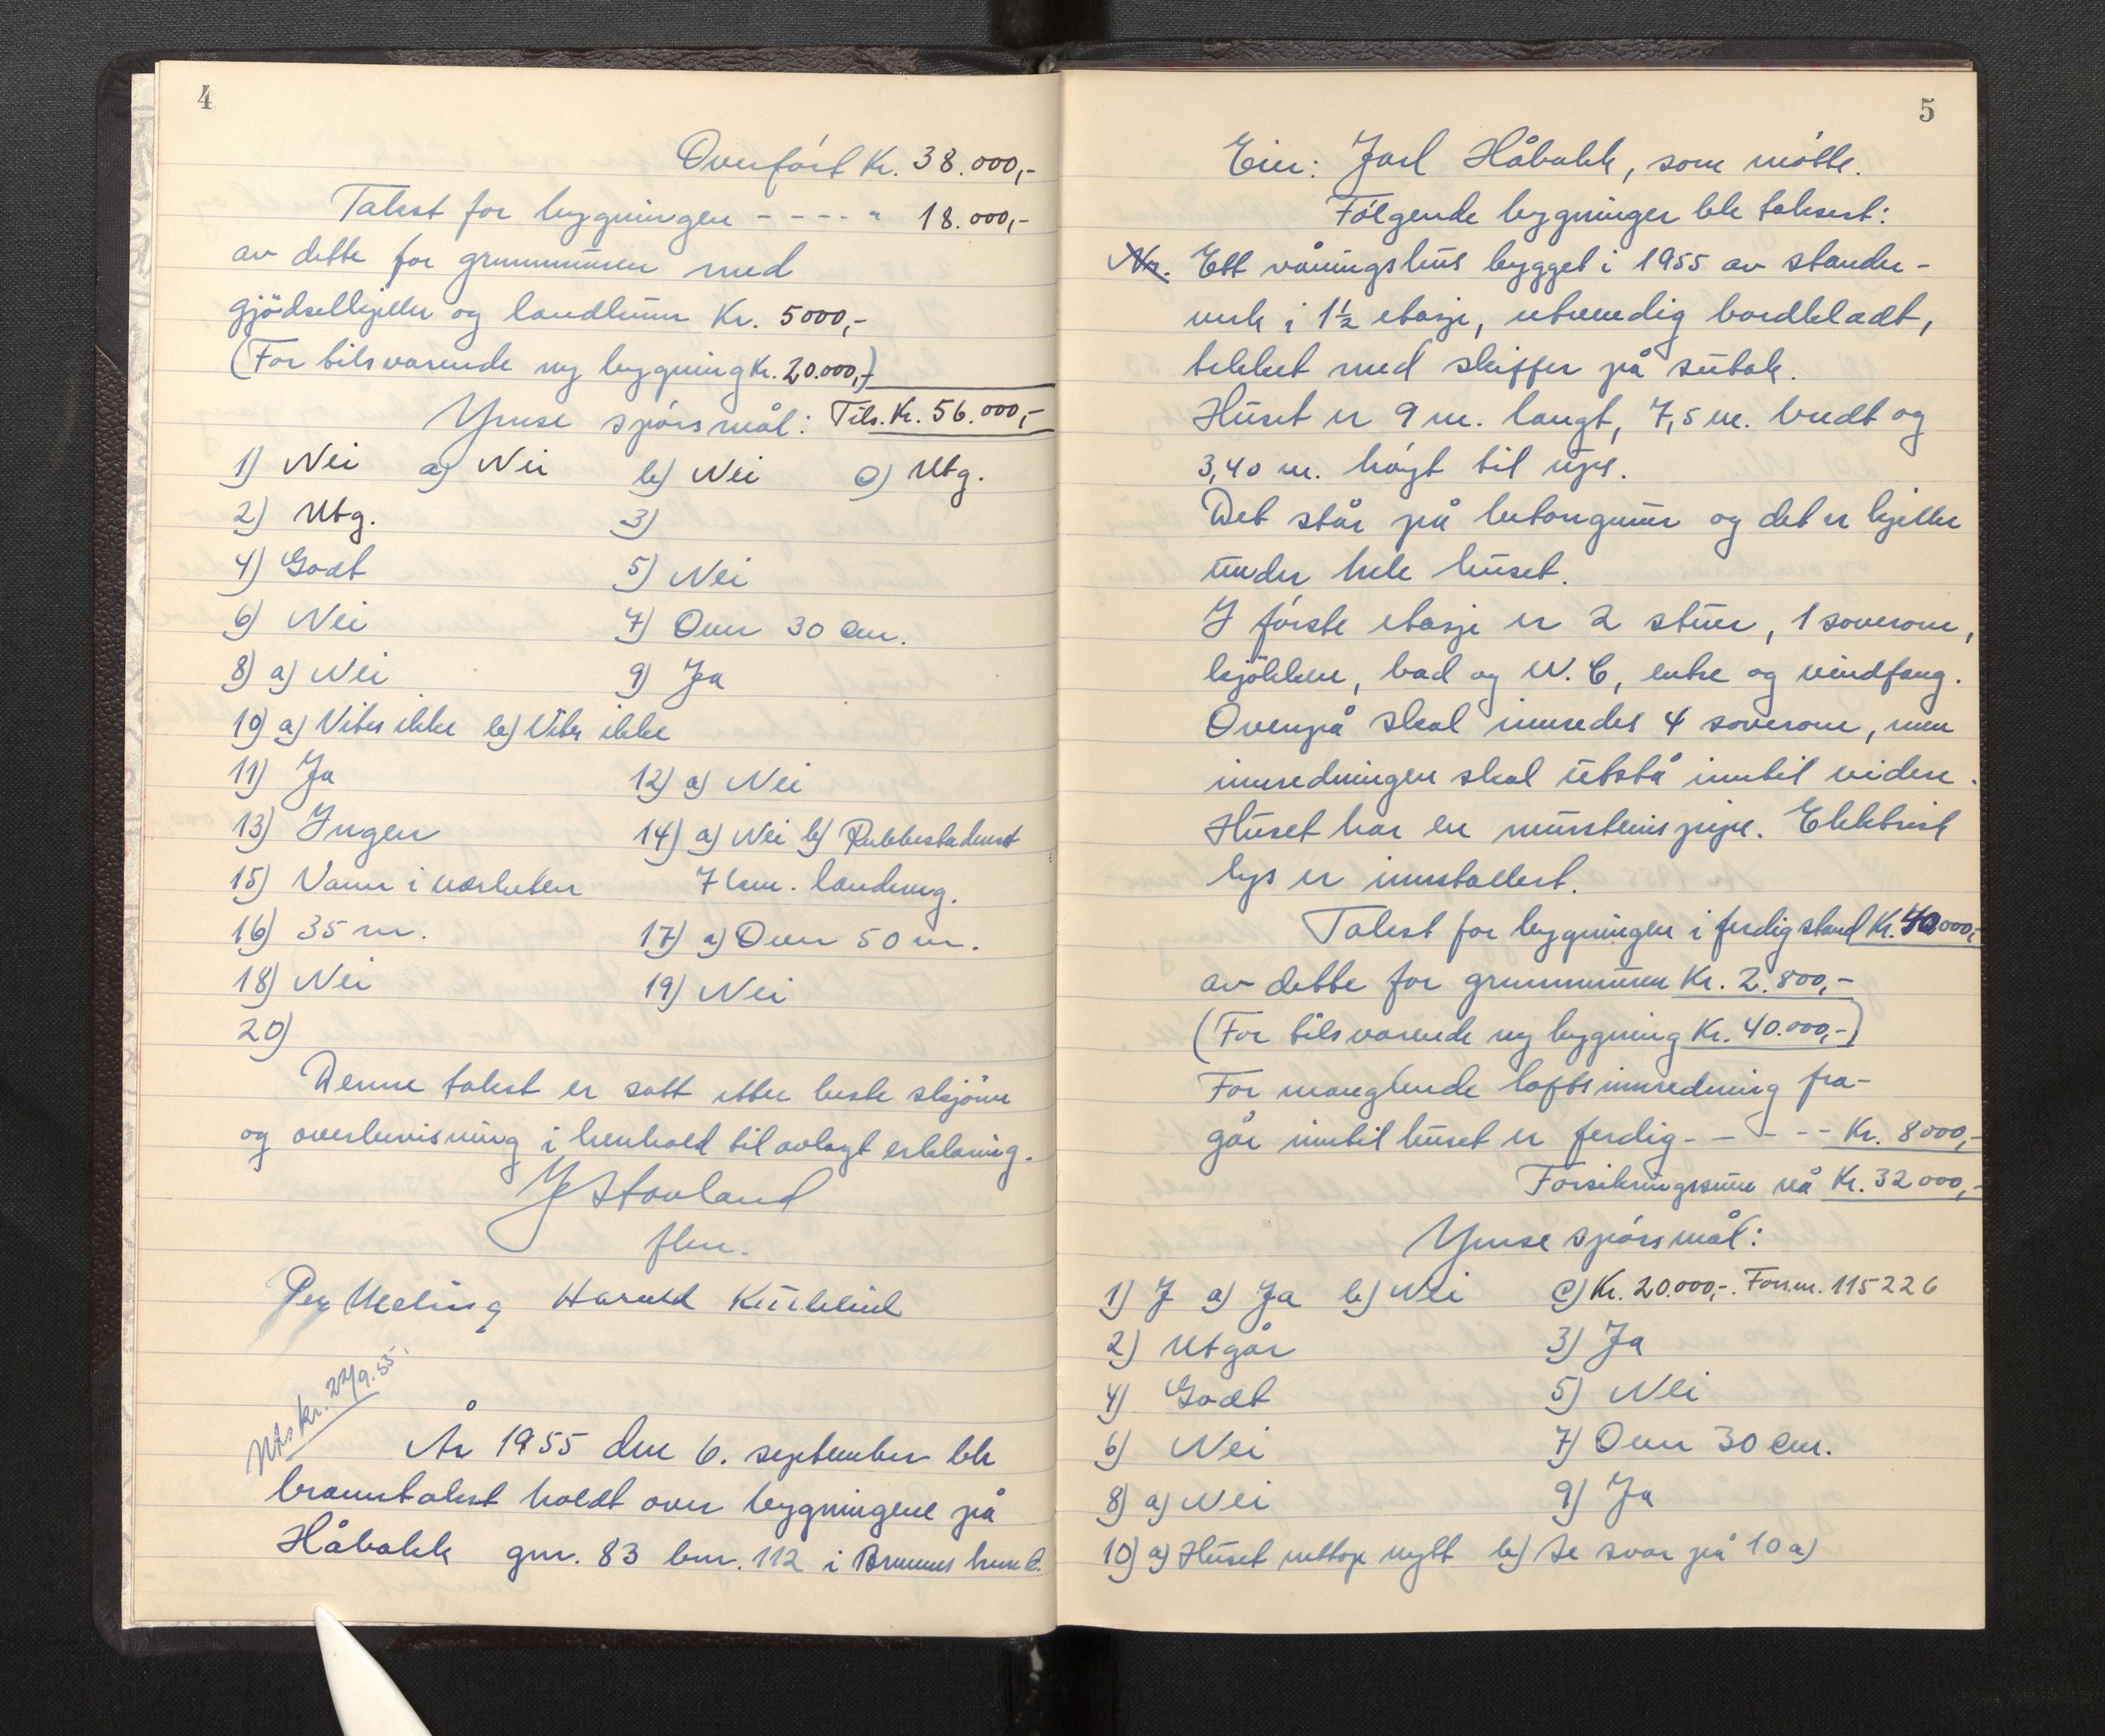 4
Overført Kr. 38.000,-
Takst for bygningen - - - - " 18.000,-
av dette for grunnmuren med
gjødselkjeller og landmur Kr. 5000,-
(For tilsvarende ny bygning Kr. 20.000,-)
Ymse spørsmål: Tils. Kr. 56.000,-
1) Nei a) Nei b) Nei c) Utg.
2) Utg. 3)
4) Godt 5) Nei
6) Nei 7) Over 30 cm.
8) a) Nei 9) Ja
10) a) Vites ikke b) Vites ikke
11) Ja 12) a) Nei
13) Ingen 14) a) Nei b) Rubbestadneset
15) Vann i nærheten 7 km. landeveg.
16) 35 m. 17) a) Over 50 m.
18) Nei 19) Nei
20)
Denne takst er satt etter beste skjønn
og overbevisning i henhold til avlagt erklæring.
J Stovland
flm.
Per Meling Harald
Utskr. 22/9.55.
År 1955 den 6. september ble
branntakst holdt over bygningene på
Håbakk gnr. 83 bnr. 112 i Bremnes herred.
5
Eier: Jarl Håbakk, som møtte.
Følgende bygninger ble taksert:
Nr. Ett våningshus bygget i 1955 av stender-
verk i 1½ etasje, utvendig bordkledt,
tekket med skiffer på sutak.
Huset er 9 m. langt, 7,5 m. bredt og
3,40 m. høyt til ups.
Det står på betongmur og det er kjeller
under hele huset.
I første etasje er 2 stuer, 1 soverom,
kjøkken, bad og W.C, entre og vindfang.
Ovenpå skal innredes 4 soverom, men
innredningen skal utstå inntil videre.
Huset har en murstenspipe. Elektrisk
lys er innstallert.
Takst for bygningen i ferdig stand Kr. 40000,-
av dette for grunnmuren Kr. 2.800,-
(For tilsvarende ny bygning Kr. 40.000,-)
For manglende loftsinnredning fra-
går inntil huset er ferdig - - - - - Kr. 8000,-
Forsikringssum nå Kr. 32000,-
Ymse spørsmål:
1) J a) Ja b) Nei c) Kr. 20.000,-. Fors.nr. 115226
2) Utgår 3) Ja
4) Godt 5) Nei
6) Nei 7) Over 30 cm.
8) a) Nei 9) Ja
10) a) Huset nettop nytt b) Se svar på 10 a)